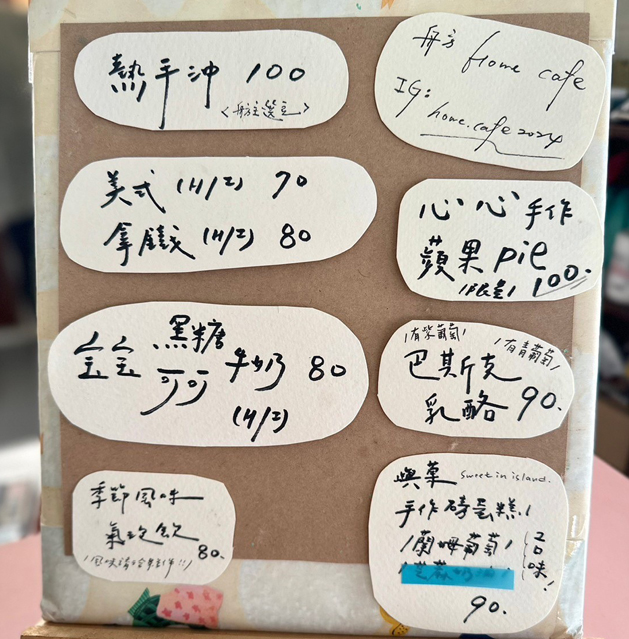 熱手沖 100
美式 (H/I) 70
拿鐵 (H/I) 80
宝宝 黑糖 可可 牛奶 80
(H/I)
季節風味
氣泡飲 80.
Home cafe
IG:
home.cafe2024
心心手作
蘋果pie
/限量/ 100.
/有紫葡萄/
/有青葡萄/
巴斯克
乳酪 90.
嶼菓 Sweet in island.
手作磅蛋糕!
/蘭姆葡萄/
2口味!
90.